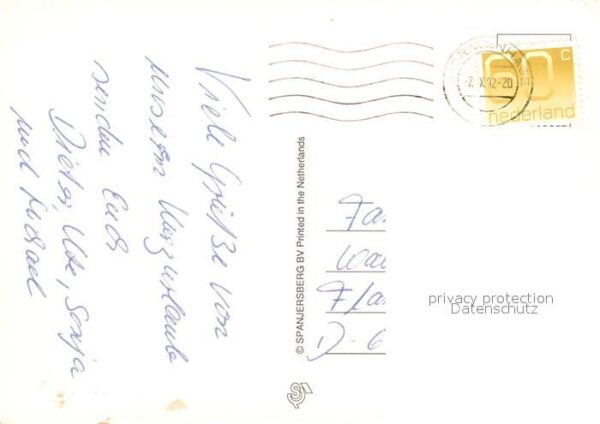 Viele Grüße von
unserem Kurzurlaub
senden Euch
Dieter, Ute, Sonja
und Michael
© SPANJERSBERG BV Printed in the Netherlands
7. X. 92-20
60 c
nederland
Fa
Wa
Fla
D-6
privacy protection
Datenschutz